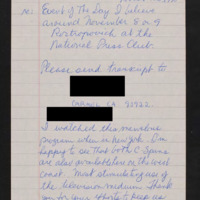 Re: Event of the Day I believe
around November 8 or 9
Rostropovich at the
National Press Club.
Please send transcript to
CARMEL CA. 93922
I watched this marvelous
program when in New York. I'm
happy to see that both C Spans
are also available here on the west
coast. Most stimulating use of
the television medium. Thank
you for your efforts to keep us